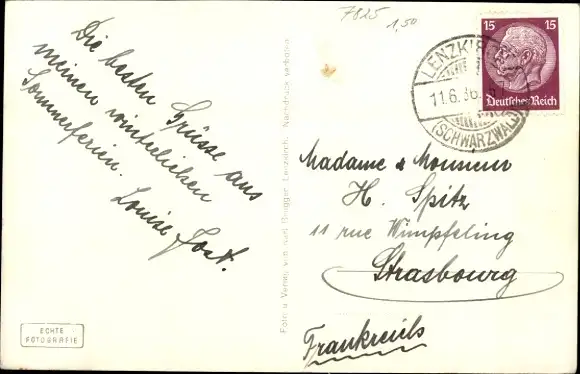 7825
1,50
Die besten Grüsse aus
meinen winterlichen
Sommerferien.
Louise Jost.
LENZKIRCH
11.6.36.
(SCHWARZWALD)
15 15
Deutsches Reich
Madame & Monsieur
H. Spitz
11 rue Wimpfeling
Strasbourg
Frankreich
Foto u. Verlag von Lenzkirch. Nachdruck verboten
ECHTE
FOTOGRAFIE